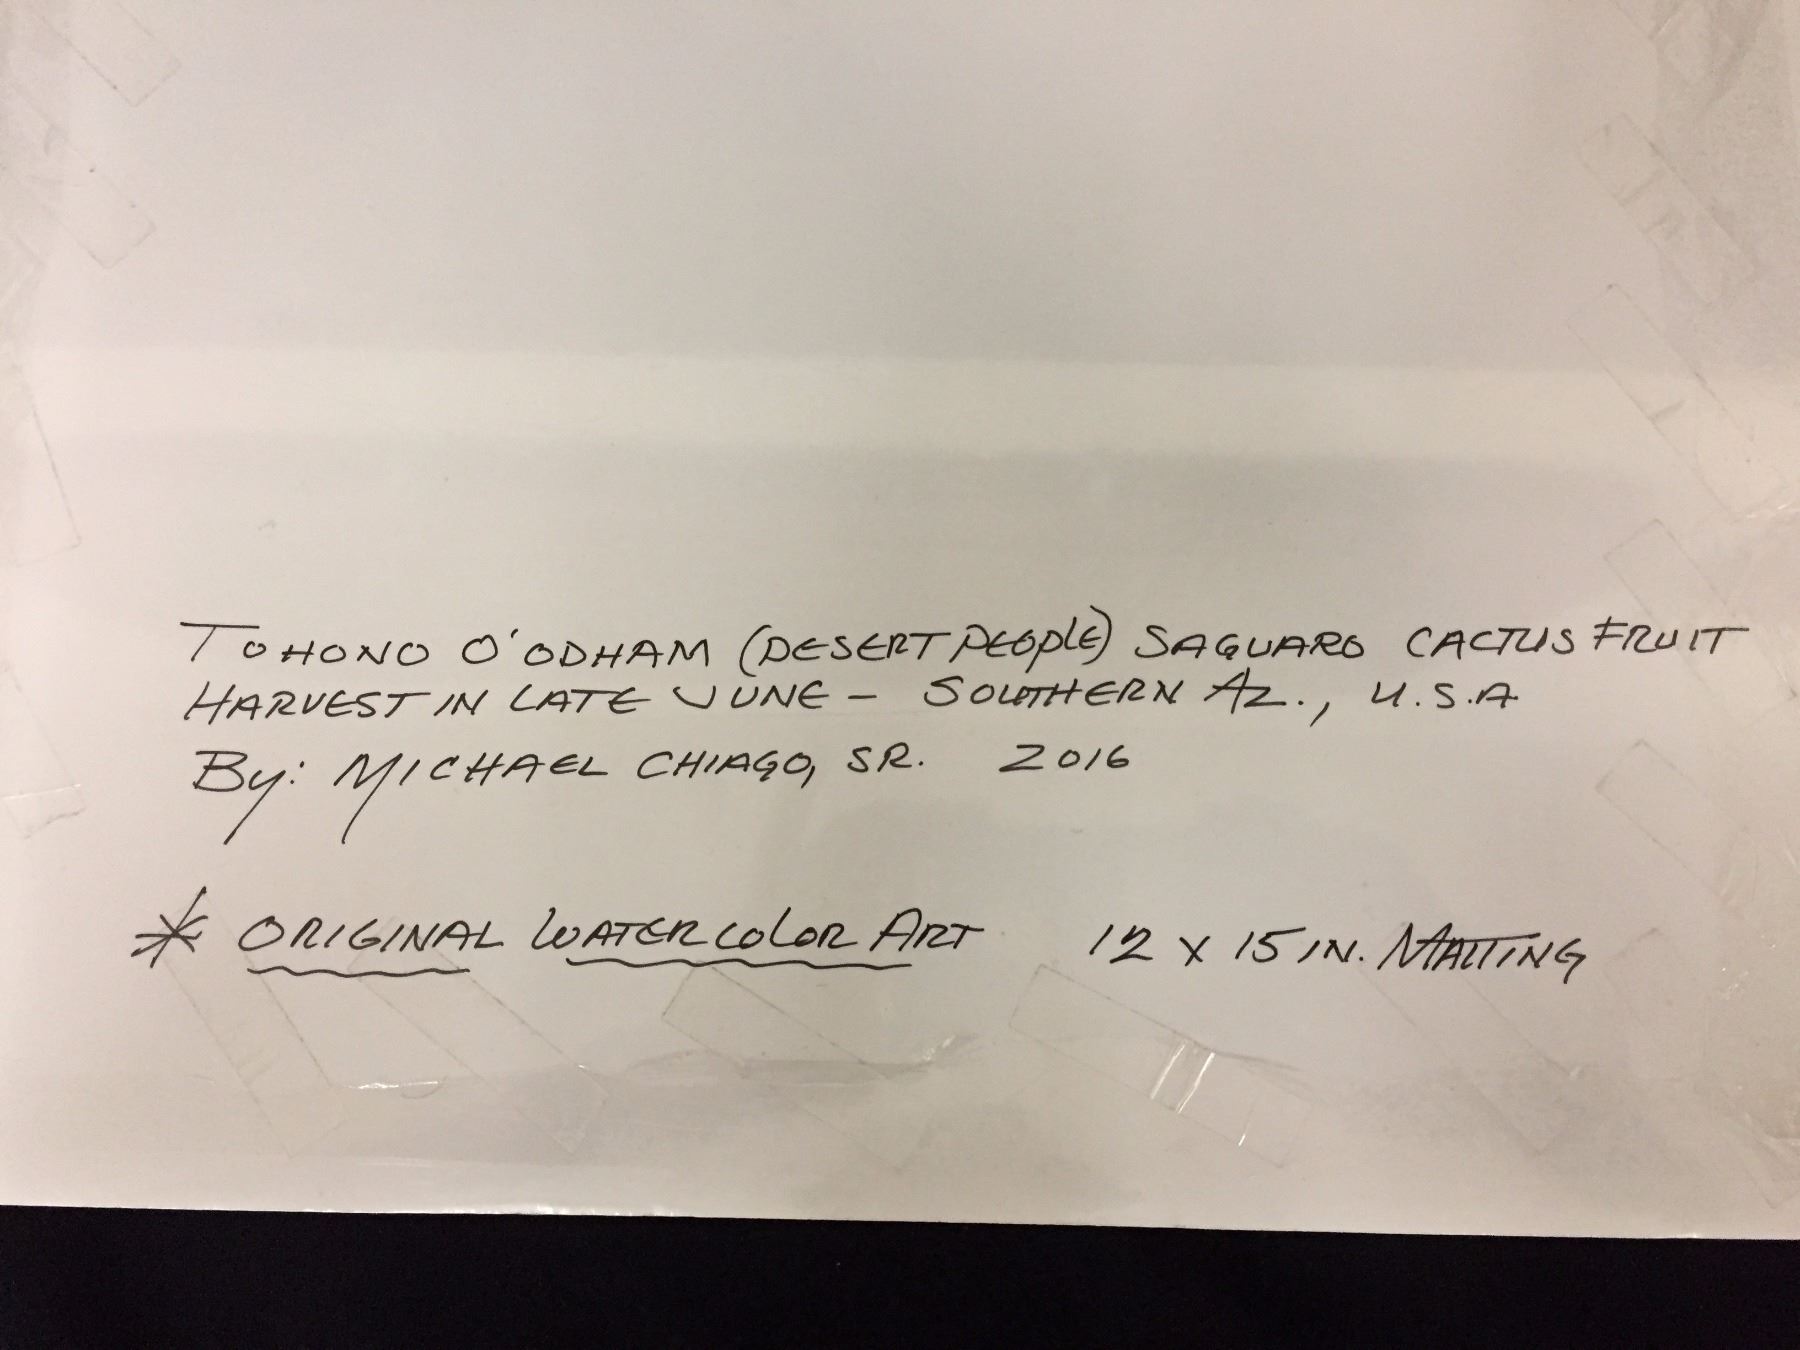 TOHONO O'ODHAM (DESERT PEOPLE) SAGUARO CACTUS FRUIT
HARVEST IN LATE JUNE - SOUTHERN AZ., U.S.A
By: MICHAEL CHIAGO, SR. 2016
* ORIGINAL WATERCOLOR ART 12 x 15 IN. MATTING